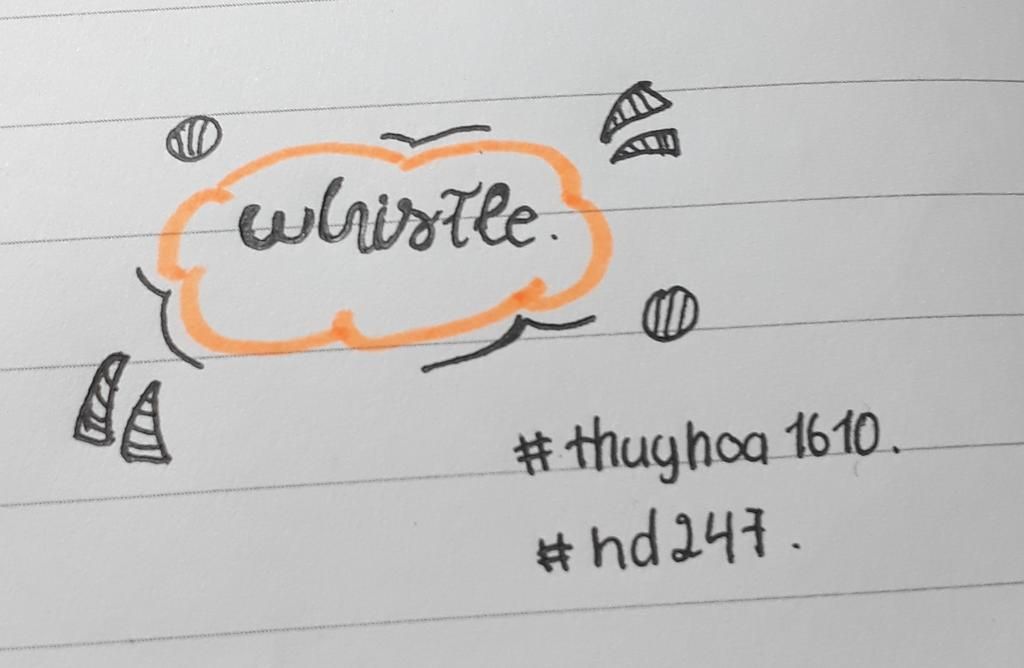 whistle.
#thuyhoa1610.
#nd247.